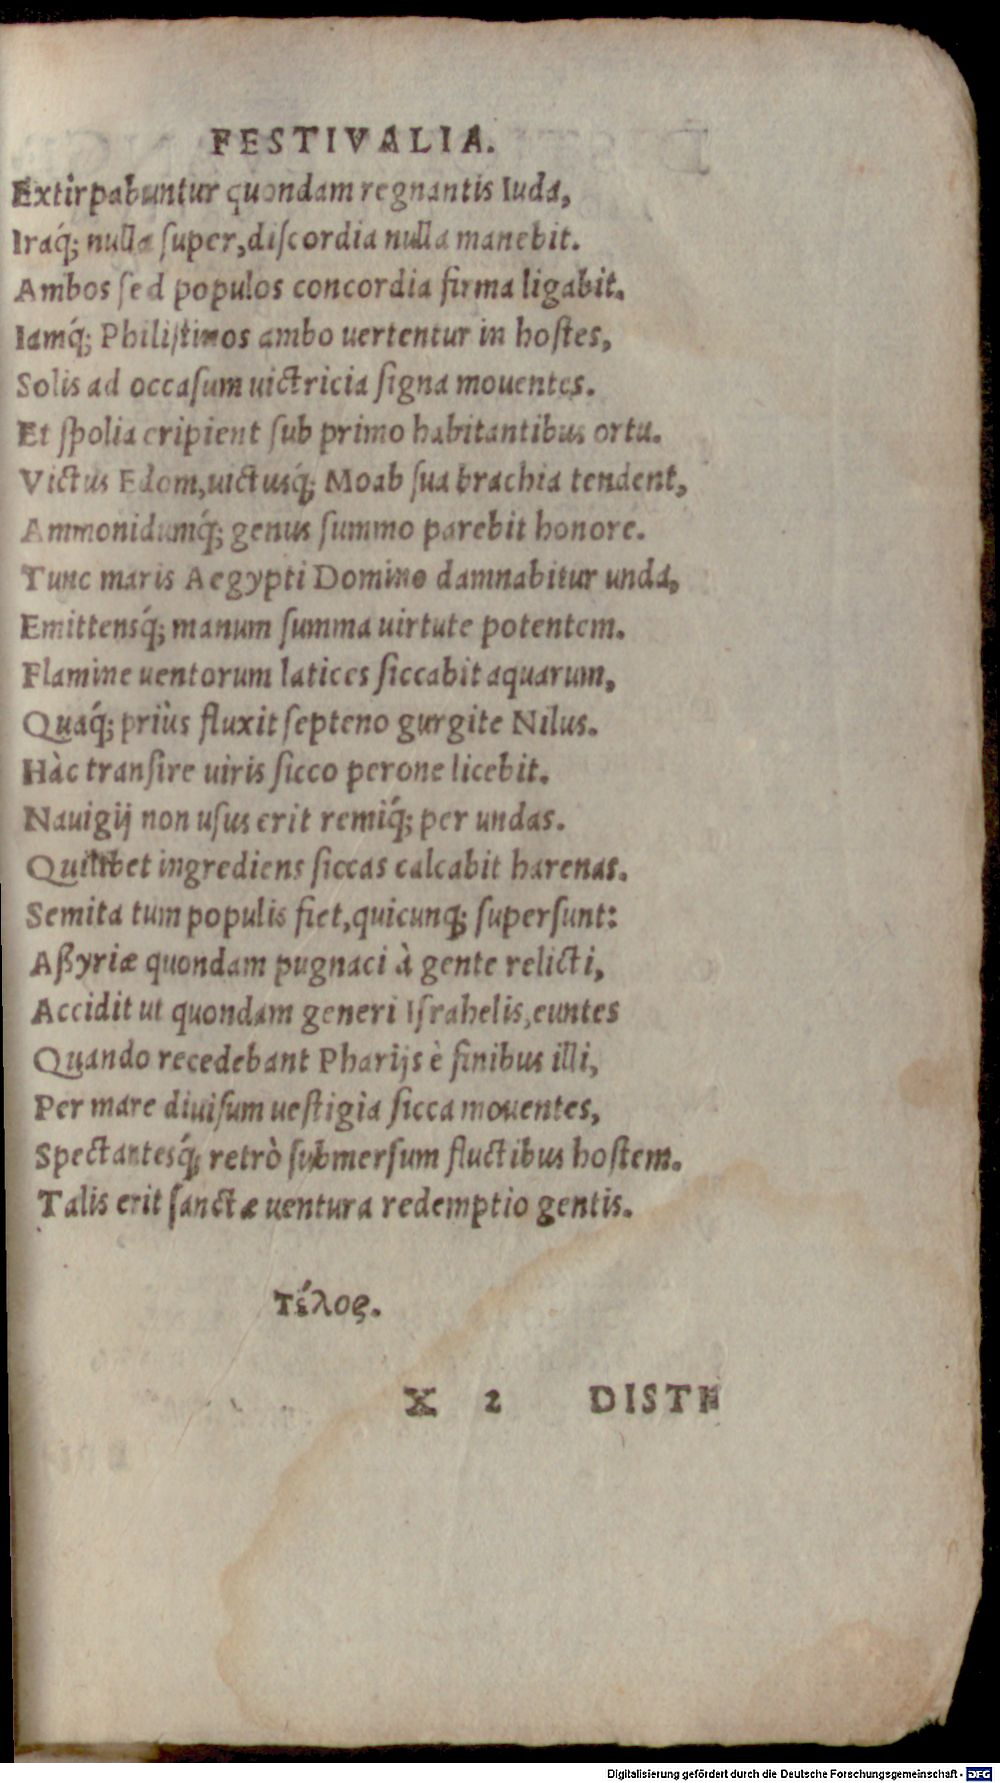 FESTIVALIA.
Extirpabuntur quondam regnantis Iuda,
Iraq́; nulla ſuper, diſcordia nulla manebit.
Ambos ſed populos concordia firma ligabit.
Iamq́; Philiſtinos ambo uertentur in hoſtes,
Solis ad occaſum uictricia ſigna mouentes.
Et ſpolia eripient ſub primo habitantibus ortu.
Victus Edom, uictusq́; Moab ſua brachia tendent,
Ammonidumq́; genus ſummo parebit honore.
Tunc maris Aegypti Domino damnabitur unda,
Emittensq́; manum ſumma uirtute potentem.
Flamine uentorum latices ſiccabit aquarum,
Quaq́; priùs fluxit ſepteno gurgite Nilus.
Hàc tranſire uiris ſicco perone licebit.
Nauigij non uſus erit remiq́; per undas.
Quilibet ingrediens ſiccas calcabit harenas.
Semita tum populis fiet, quicunq; ſuperſunt:
Aßyriæ quondam pugnaci à gente relicti,
Accidit ut quondam generi Iſrahelis, euntes
Quando recedebant Pharijs è finibus illi,
Per mare diuiſum ueſtigia ſicca mouentes,
Spectantesq́; retrò ſubmerſum fluctibus hoſtem.
Talis erit ſanctæ uentura redemptio gentis.
Τέλος.
X 2 DISTE
Digitalisierung gefördert durch die Deutsche Forschungsgemeinschaft - DFG